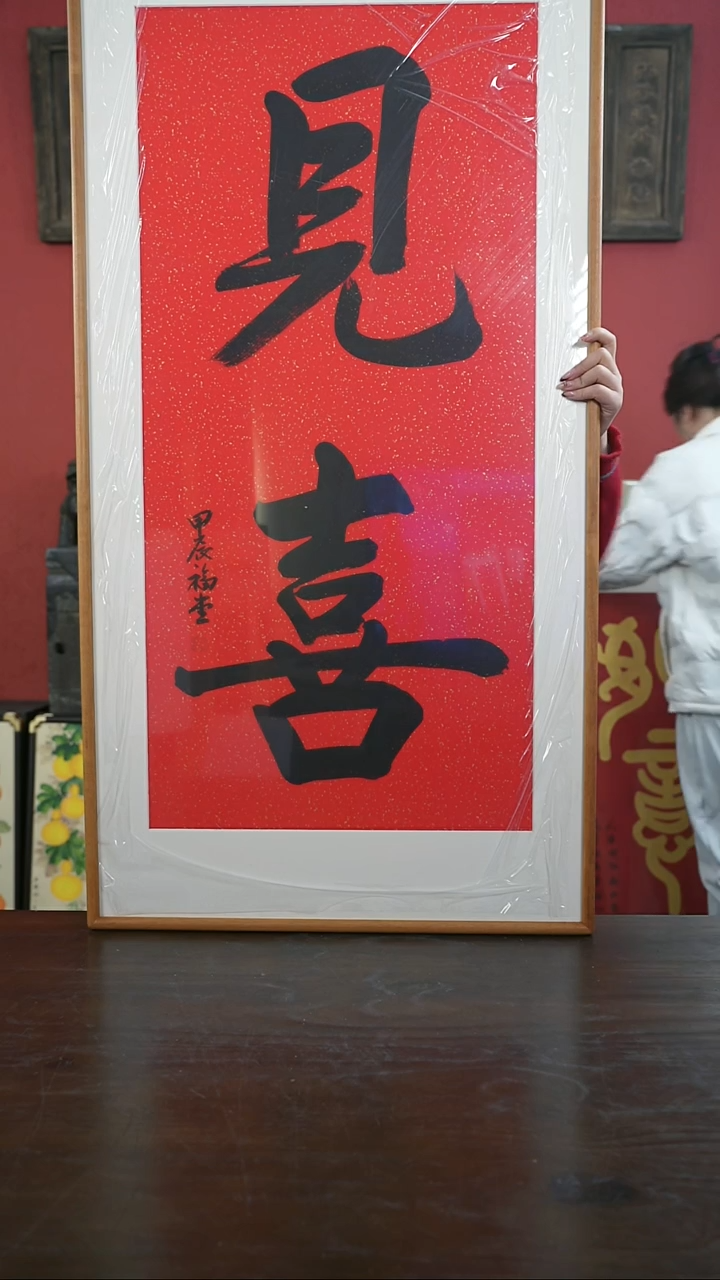 見
喜
甲辰福堂